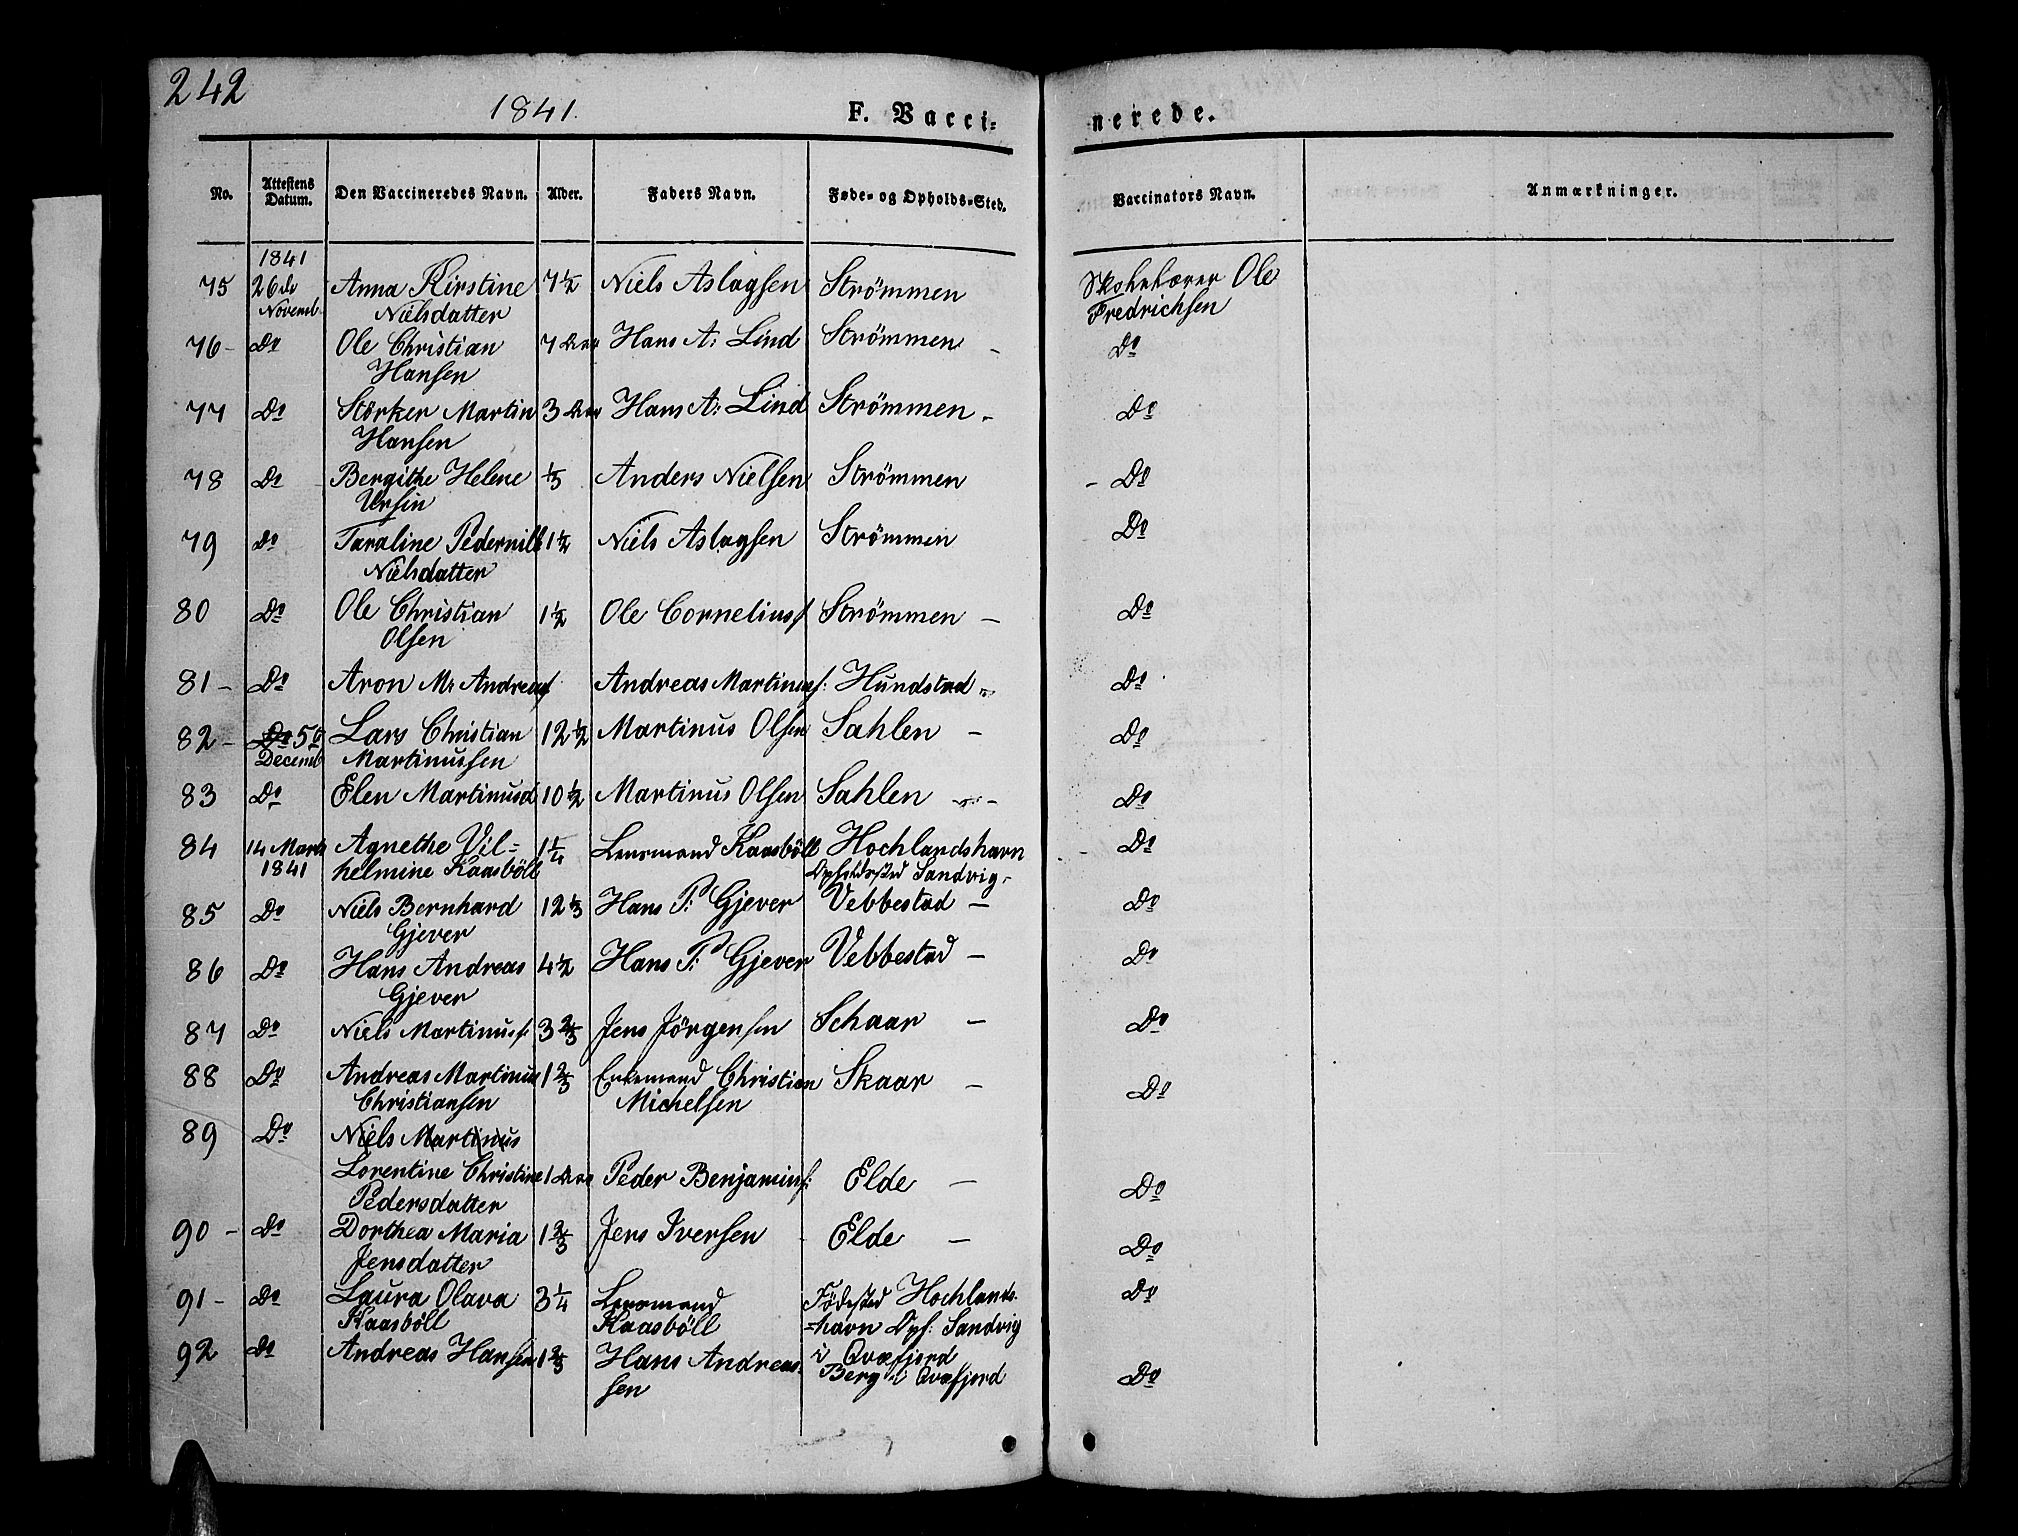 242
1841. F. Vacci- nerede.
No. Attestens Datum. Den Vaccineredes Navn. Alder. Faders Navn. Føde- og Opholds-Sted. Vaccinators Navn. Anmærkninger.
1841
75 26de Anna Kirstine 7 1/2 Niels Aslagsen Strömmen Skoleholder Ole
Novemb. Nielsdatter Fredrichsen
76 - Do Ole Christian 7 Aar Hans A: Lind Strömmen - Do
Hansen
77 Do Störker Martin 3 Aar Hans A: Lind Strömmen - Do
Hansen
78 Do Bergithe Helene 1/3 Anders Nielsen Strömmen - Do
Ursin
79 Do Taraline Pedernille 1 1/2 Niels Aslagsen Strömmen Do
Nielsdatter
80 Do Ole Christian 1 1/2 Ole Corneliusf Strömmen - Do
Olsen
81 - Do Aron M: Andreasf Andreas Martinusf: Hundstad - Do
82 - Do 5te Lars Christian 12 1/2 Martinus Olsen Sahlen - Do
Decemb Martinussen
83 Do Elen Martinusd 10 1/2 Martinus Olsen Sahlen - Do
84 14 Marts Agnethe Vil- 1 1/4 Lensmand Kaasböll Hochlandshavn - Do
1841 helmine Kaasböll Opholdssted Sandvig -
85 Do Niels Bernhard 12 1/3 Hans P: Gjever Vebbestad - Do
Gjever
86 Do Hans Andreas 4 1/2 Hans P: Gjever Vebbestad - Do
Gjever
87 Do Niels Martinusf: 3 2/3 Jens Jörgensen Schaar - Do
88 Do Andreas Martinus 1 2/3 Enkemand Christian Skaar - Do
Christiansen Michelsen
89 Do Niels Martinus
Lorentine Christine 1 Aar Peder Benjaminf: Elde - Do
Pedersdatter
90 - Do Dorthea Maria 1 2/3 Jens Iversen Elde - Do
Jensdatter
91 - Do Laura Olava 3 1/4 Lensmand Födested Hochlands- Do
Kaasböll Kaasböll =havn Opf: Sandvig
92 Do Andreas Hansen 1 2/3 Hans Andreas- i Qvæfjord Do
sen Berg i Qvæfjord